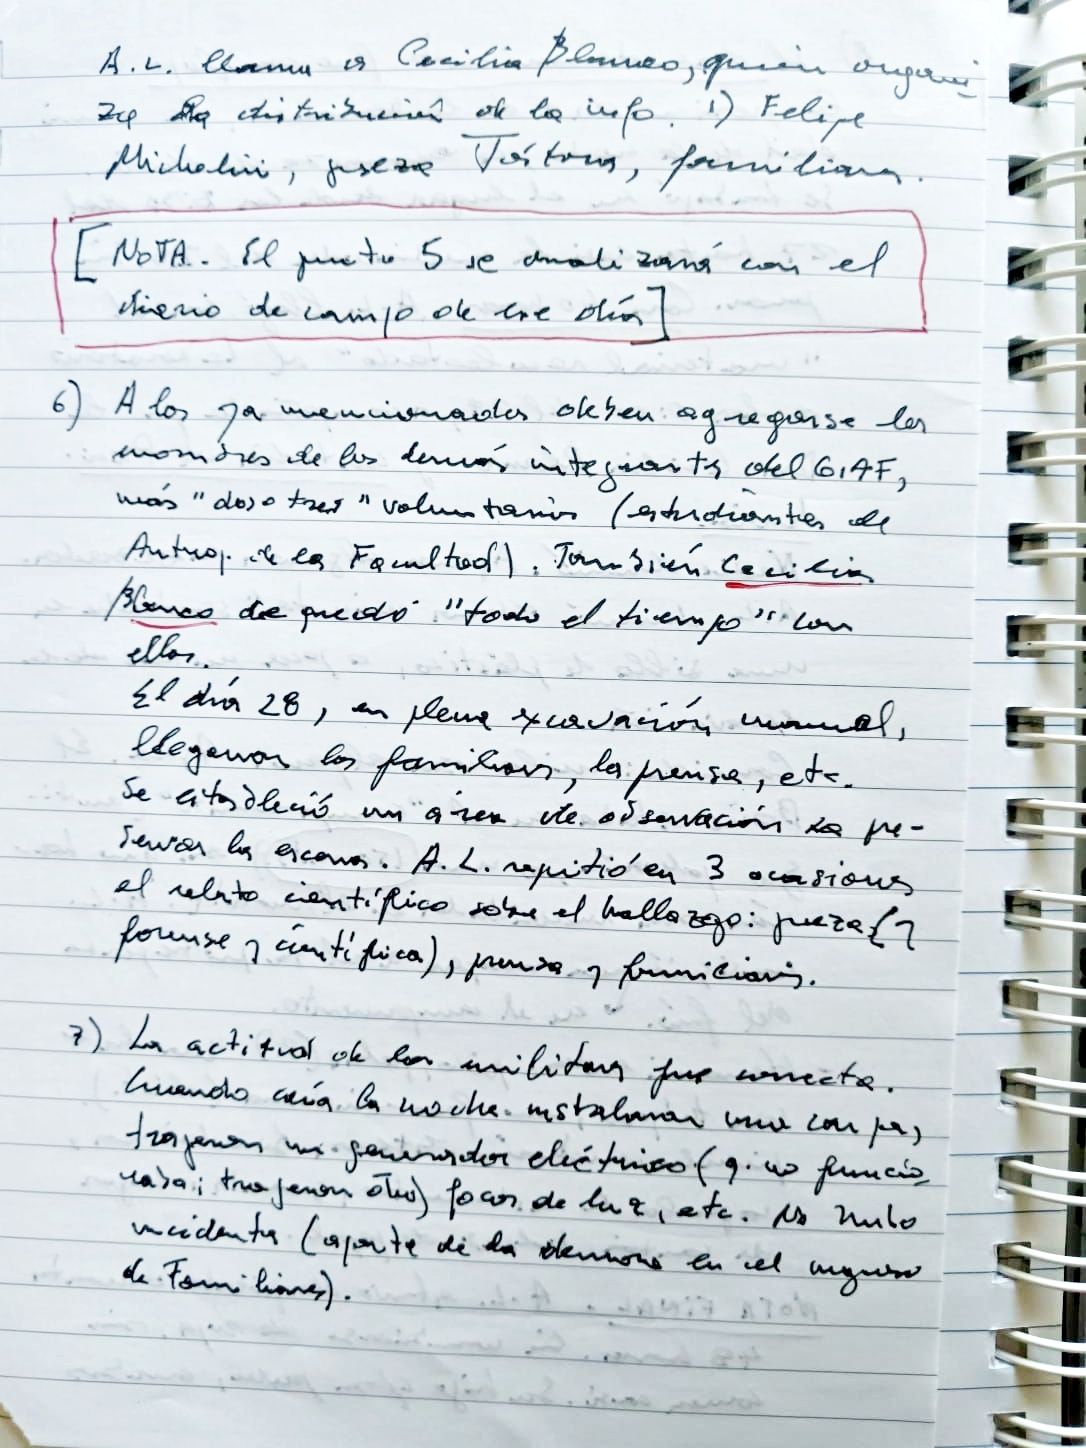 A.L. llama a Cecilia Blanco, quien organi
za la distribución de la info. 1) Felipe
Michelini, jueza Tórtora, familiares.
[NOTA. El punto 5 se analizará con el
diario de campo de ese día]
6) A los ya mencionados deben agregarse los
nombres de los demás integrantes del GIAF,
más "dos o tres" voluntarios (estudiantes de
Antrop. de la Facultad). También Cecilia
Blanco se quedó "todo el tiempo" con
ellos.
El día 28, en plena excavación manual,
llegaron los familiares, la prensa, etc.
Se estableció un área de observación pa pre-
servar la escena. A.L. repitió en 3 ocasiones
el relato científico sobre el hallazgo: jueza (
forense y científica), prensa y familiares.
7) La actitud de los militares fue correcta.
Cuando caía la noche instalaron una carpa,
trajeron un generador eléctrico (q. no funcio
naba; trajeron otro) focos de luz, etc. No hubo
incidentes (aparte de la demora en el ingreso
de Familiares).